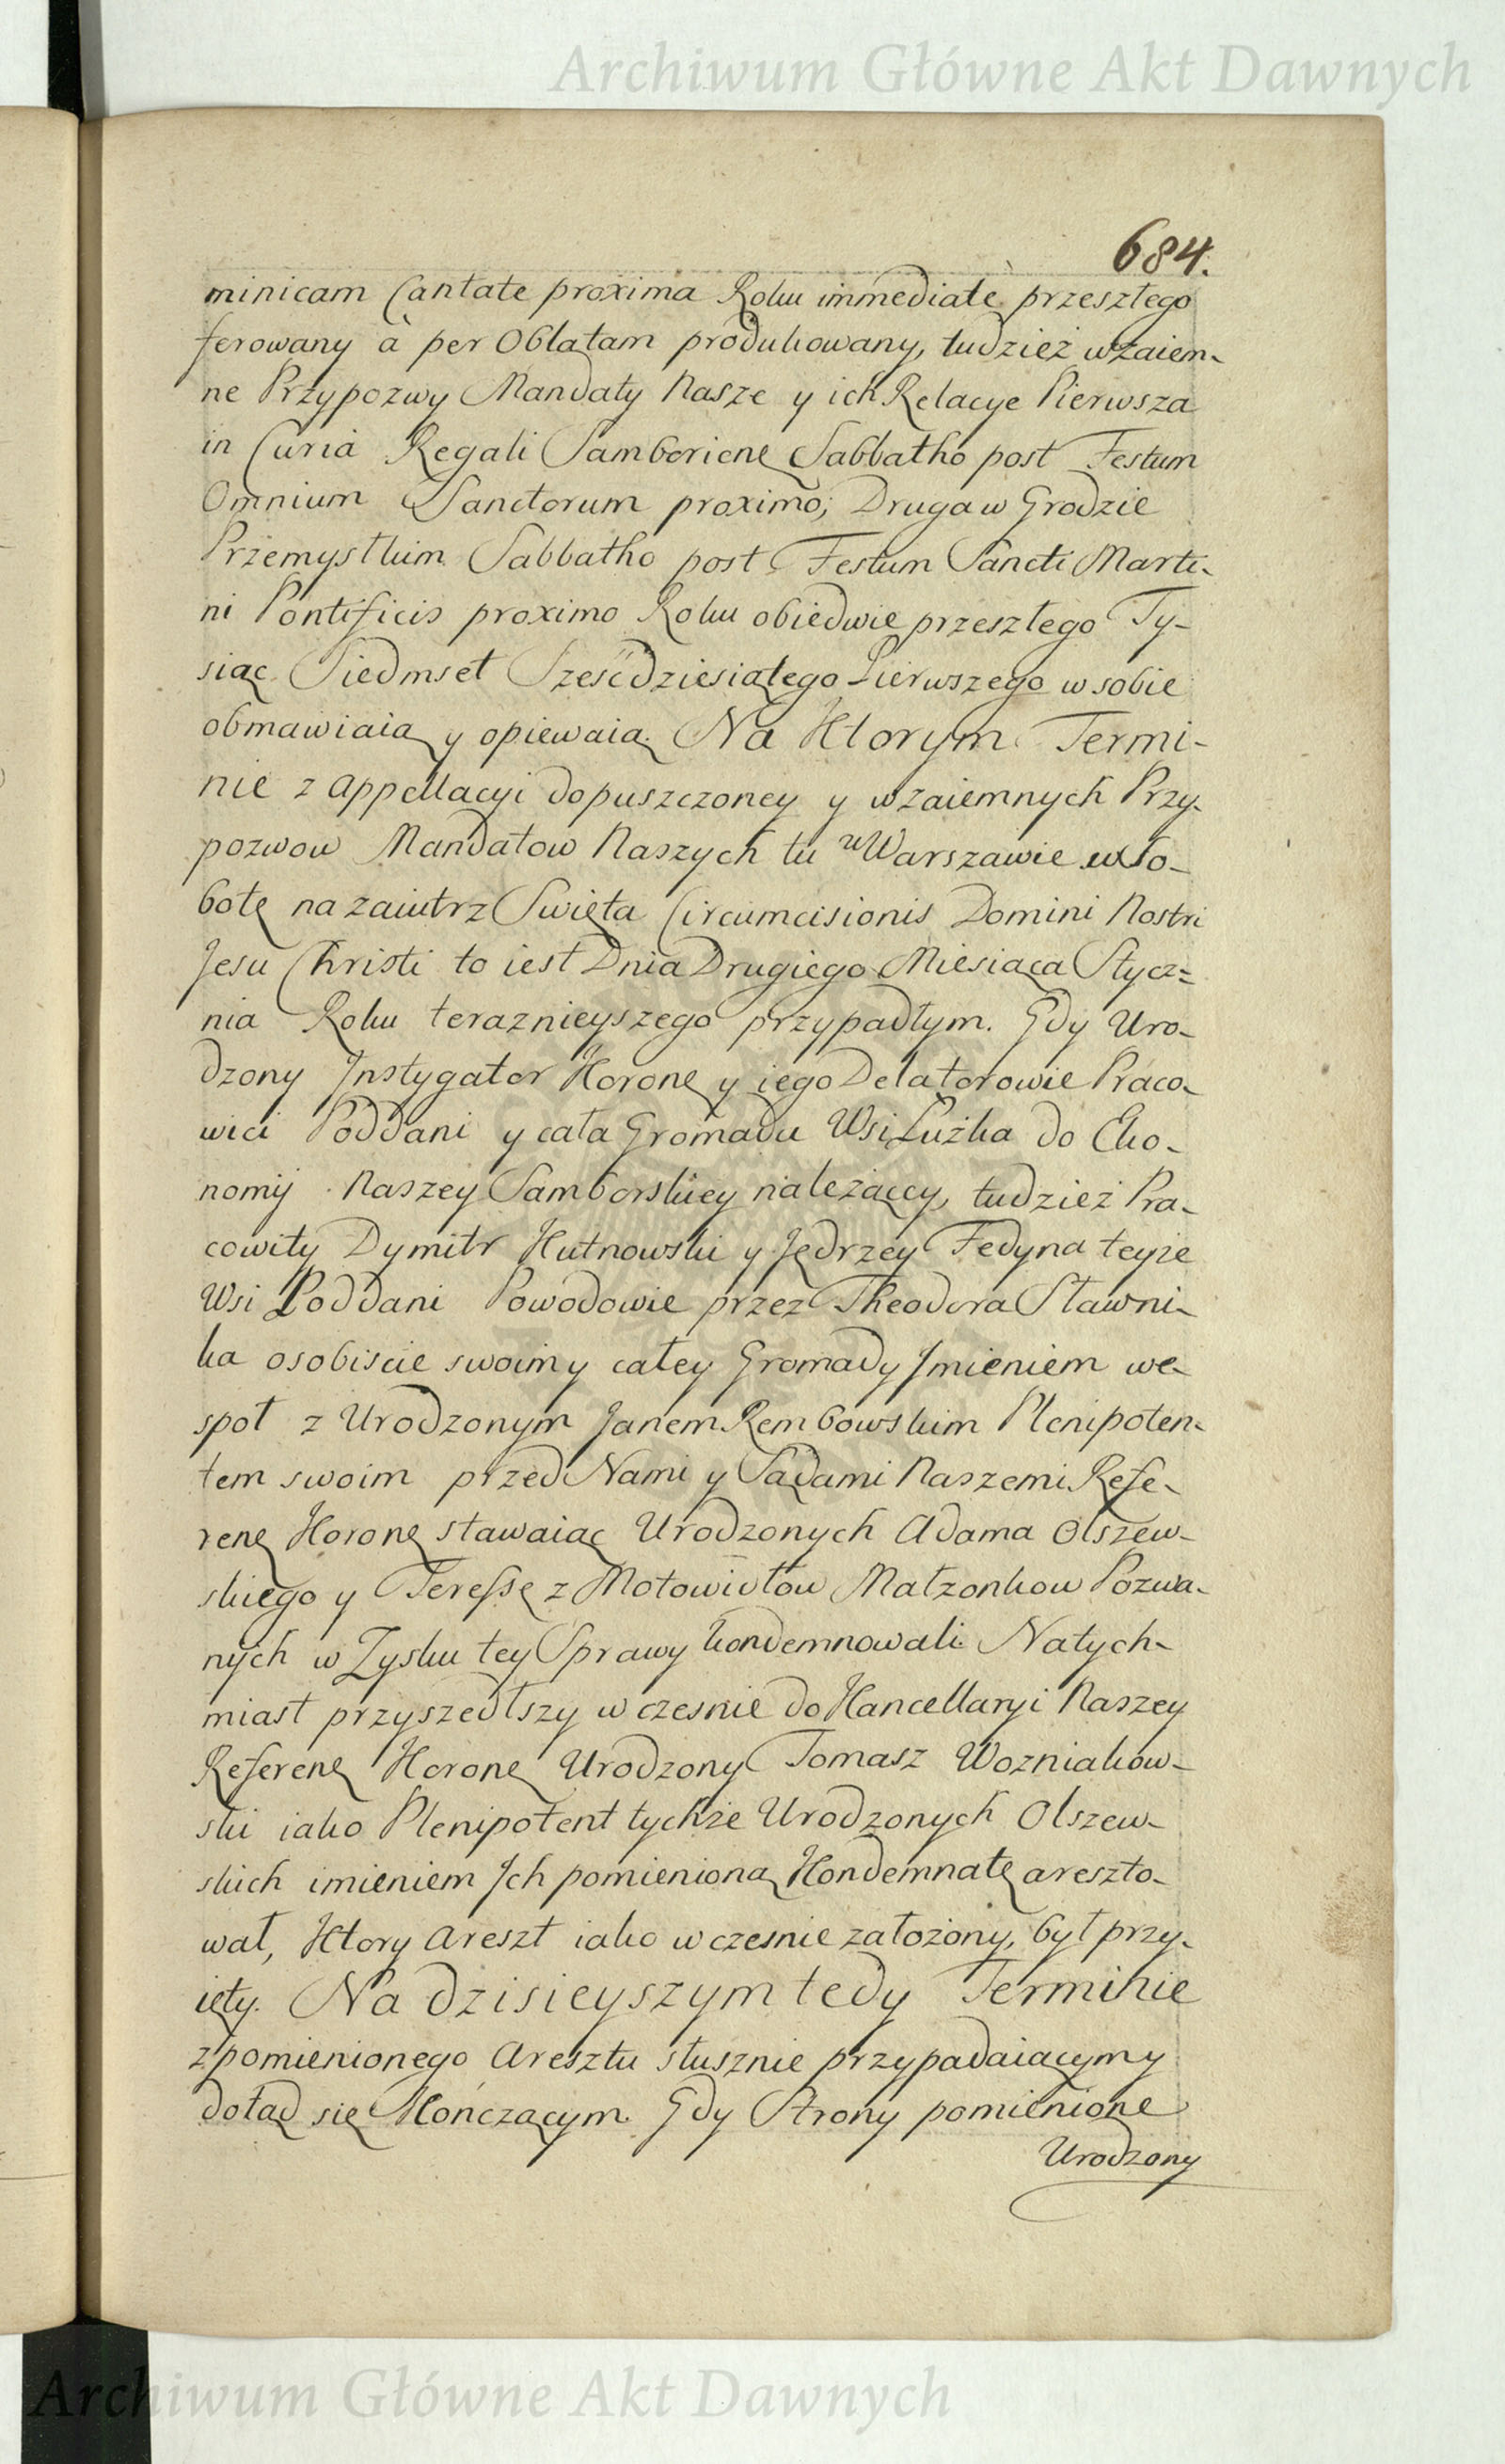 Archiwum Główne Akt Dawnych
684.
minicam Cantate proxima Roku immediatè przeszłego
ferowany à per Oblatam produkowany, tudzież wzaiem-
ne Przypozwy Mandaty Nasze y ich Relacye Pierwsza
in Curia Regali Samborienę Sabbatho post Festum
Omnium Sanctorum proximo; Druga w Grodzie
Przemyslkim Sabbatho post Festum Sancti Marti-
ni Pontificis proximo Roku obiedwie przeszłego Ty-
siąc Siedmset Sześcdziesiątego Pierwszego w sobie
obmawiaią y opiewaią. Na Ktorym Termi-
nie z Appellacyi dopuszczoney y wzaiemnych Przy-
pozwow Mandatow Naszych tu w Warszawie w So-
botę nazaiutrz Swięta Circumcisionis Domini Nostri
Jesu Christi to iest Dnia Drugiego Miesiąca Stycz=
nia Roku teraznieyszego przypadłym. Gdy Uro-
dzony Jnstygator Koronę y iego Delatorowie Praco-
wici Poddani y cała Gromada Wsi Łużka do Eko-
nomij Naszey Samborskiey należąccy, tudzież Pra-
cowity Dymitr Kutnowski y Jędrzey Fedyna teyże
Wsi Poddani Powodowie przez Theodora Sławni-
ka osobiscie swoim y całey Gromady Jmieniem we-
społ z Urodzonym Janem Rembowskim Plenipoten-
tem swoim przed Nami y Sądami Naszemi Refe-
renę Koronę stawaiąc Urodzonych Adama Olszew-
skiego y Teressę z Motowidłow Małzonkow Pozwa-
nych w Zysku tey Sprawy kondemnowali. Natych-
miast przyszedłszy w czesnie do Kancellaryi Naszey
Referenę Koronę Urodzony Tomasz Wozniakow-
ski iako Plenipotent tychże Urodzonych Olszew-
skich imieniem Jch pomienioną Kondemnatę areszto-
wał, Ktory Areszt iako w czesnie założony, był przy-
ięty. Na dzisieyszym tedy Terminie
z pomienionego Aresztu słusznie przypadaiącym y
dotąd się Kończącym. Gdy Strony pomienione
Urodzony
Archiwum Główne Akt Dawnych